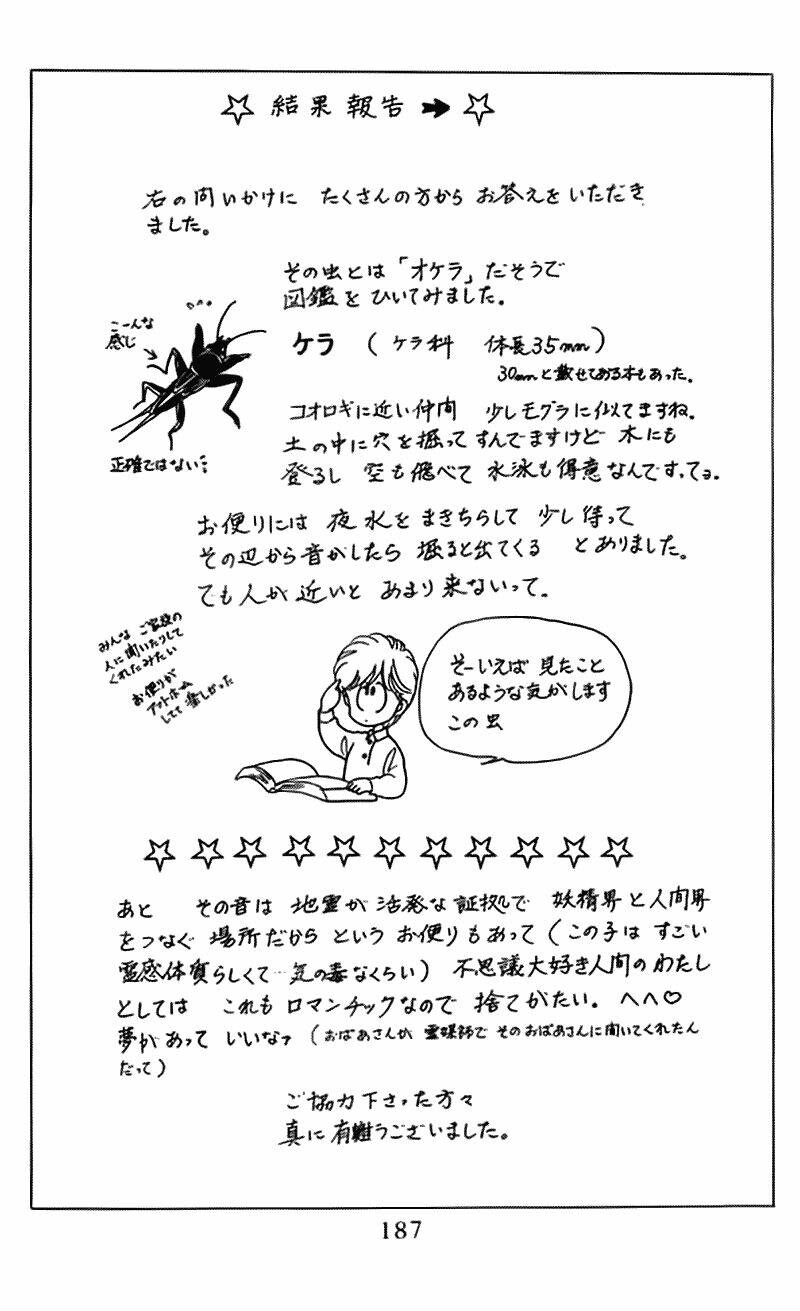 ☆ 結果報告 ➡ ☆
右の問いかけに たくさんの方から お答えをいただき
ました。
その虫とは「オケラ」だそうで
図鑑を ひいてみました。
こーんな
感じ
ケラ ( ケラ科 体長35mm)
30mmと載せてある本もあった。
コオロギに近い仲間 少しモグラに似てますね。
土の中に穴を掘ってすんでますけど 木にも
登るし 空も飛べて 水泳も得意なんですってョ。
正確ではない
お便りには 夜 水を まきちらして 少し待って
その辺から音がしたら 掘ると出てくる とありました。
でも人が近いと あまり来ないって。
みんな ご家族の
人に聞いたりして
くれたみたい
お便りが
アットホーム
してて 楽しかった
そーいえば 見たこと
あるような気がします
この虫
☆ ☆ ☆ ☆ ☆ ☆ ☆ ☆ ☆ ☆ ☆
あと その音は 地霊が 活発な証拠で 妖精界と人間界
をつなぐ 場所だから という お便りもあって (この子は すごい
霊感体質らしくて…気の毒なくらい) 不思議大好き人間のわたし
としては これも ロマンチックなので 捨てがたい。へへ♡
夢があって いいなァ (おばあさんが 霊媒師で そのおばあさんに聞いてくれたん
だって)
ご協力下さった方々
真に有難うございました。
187